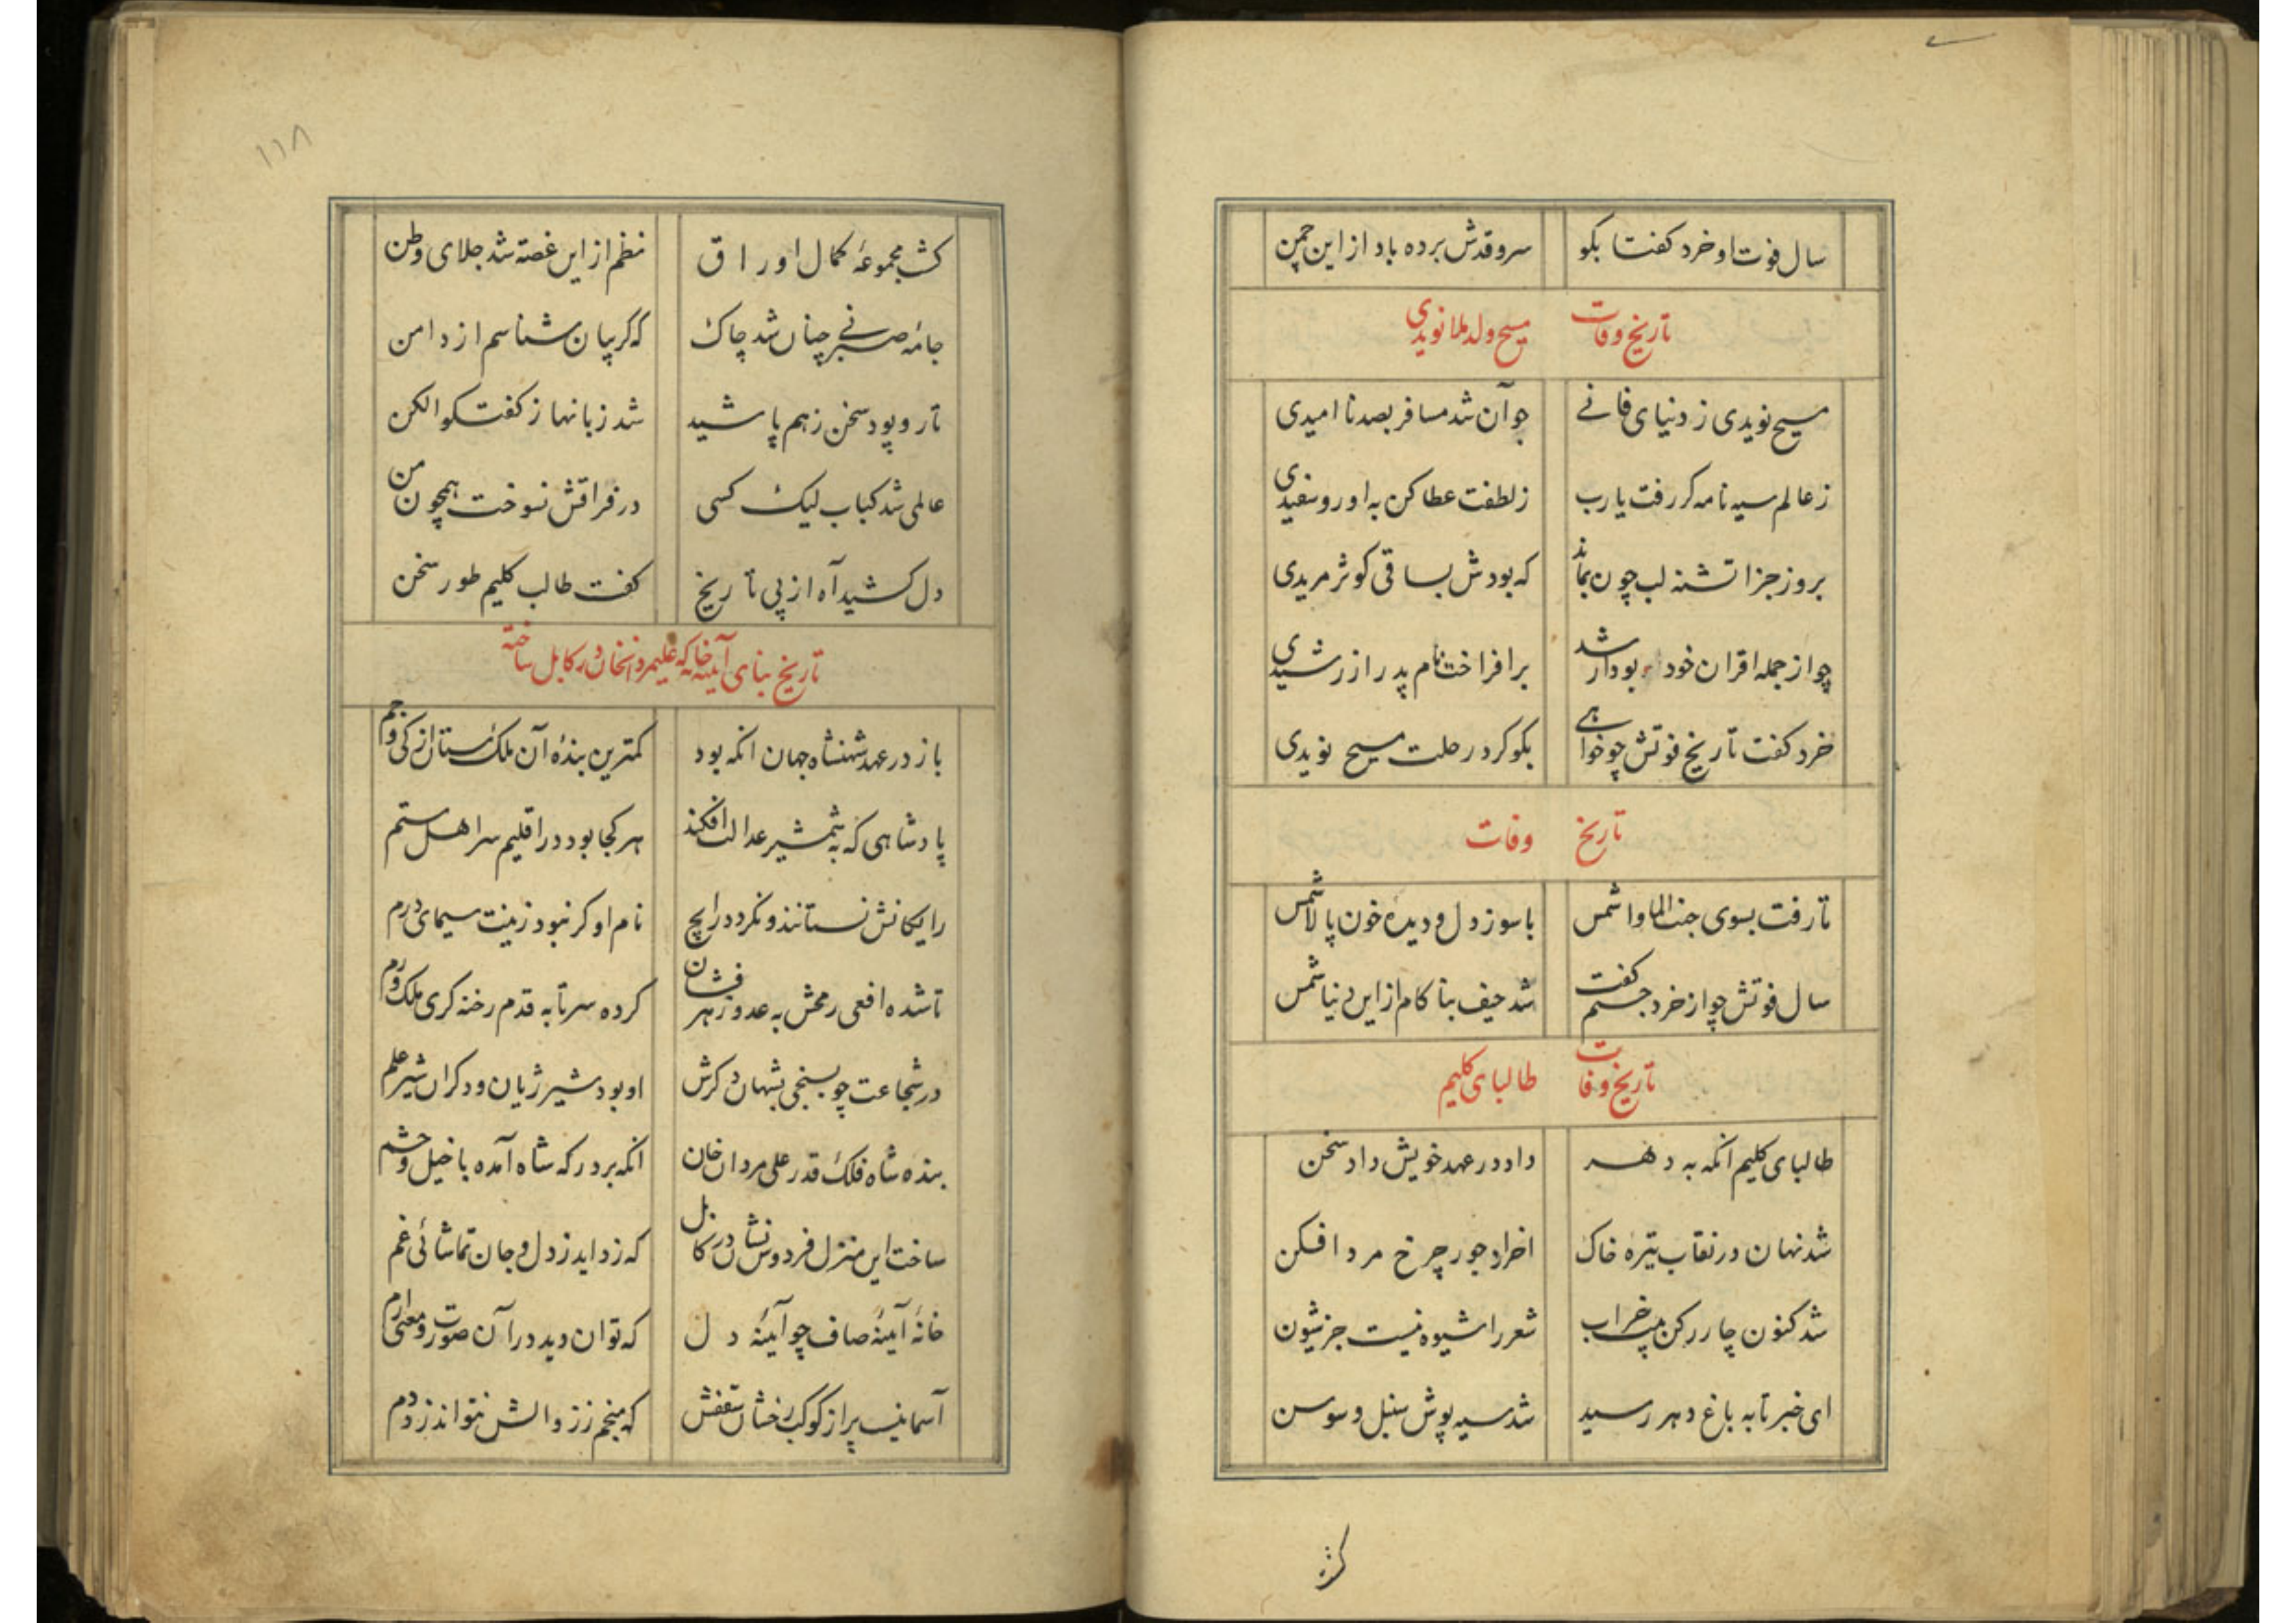 سال فوت او خرد کفتا بکو سرو قدش برده باد از این چمن
تاریخ وفات مسیح ولد ملا نویدی
مسیح نویدی ز دنیای فانے جوآن شد مسافر بصد نا امیدی
ز عالم سیه نامه کر رفت یارب ز لطفت عطا کن به او رو سفیدی
بروز جزا تشنه لب چون بماند که بودش بساقی کوثر مریدی
چو از جمله اقران خود بود ارشد برافراخت نام پدر از رشیدی
خرد کفت تاریخ فوتش چو خواهے بکو کرد رحلت مسیح نویدی
تاریخ وفات
تا رفت بسوی جنت الماوا شمس با سوز دل و دیده خون پالا شمس
سال فوتش چو از خرد جستم کفت شد حیف بناکام از این دنیا شمس
تاریخ وفات طالبای کلیم
طالبای کلیم انکه به دهر داد در عهد خویش داد سخن
شد نهان در نقاب تیره خاک آخر از جور چرخ مرد افکن
شد کنون چار رکن بیت خراب شعر را شیوه نیست جز شیون
ای خبر تا به باغ دهر رسید شد سیه پوش سنبل و سوسن
کشت
۱۱۸
کشت مجموعهٔ کمال اوراق نظم از این غصه شد جلای وطن
جامهٔ صبر نے چنان شد چاک که کریبان شناسم از دامن
تار و پود سخن ز هم پاشید شد زبانها ز کفتکو الکن
عالمی شد کباب لیک کسی در فراقش نسوخت همچون من
دل کشید آه از پی تاریخ کفت طالب کلیم طور سخن
تاریخ بنای آینه خانه که علیمردانخان در کابل ساخته
باز در عهد شهنشاه جهان انکه بود کمترین بندهٔ آن ملک ستان از کی و جم
پادشاهی که به شمشیر عدالت افکند هر کجا بود در اقلیم سر اهل ستم
رایکانش نستانند و نکردد رایج نام او کر نبود زینت سیمای درم
تا شده افعی رمحش به عدو زهر فشان کرده سر تا به قدم رخنه کری ملک ورم
در شجاعت چو بسنجی بشهان دکرش او بود شیر ژیان و دکران شیر علم
بنده شاه فلک قدر علی مردان خان انکه بر درکه شاه آمده با خیل و حشم
ساخت این منزل فردوس نشان در کابل که زداید ز دل و جان تماشائی غم
خانهٔ آینهٔ صاف چو آینهٔ دل که توان دید در آن صورت و معنی ارم
آسمانیست پر از کوکب رخشان سقفش که منجم ز زوالش نتواند زد دم